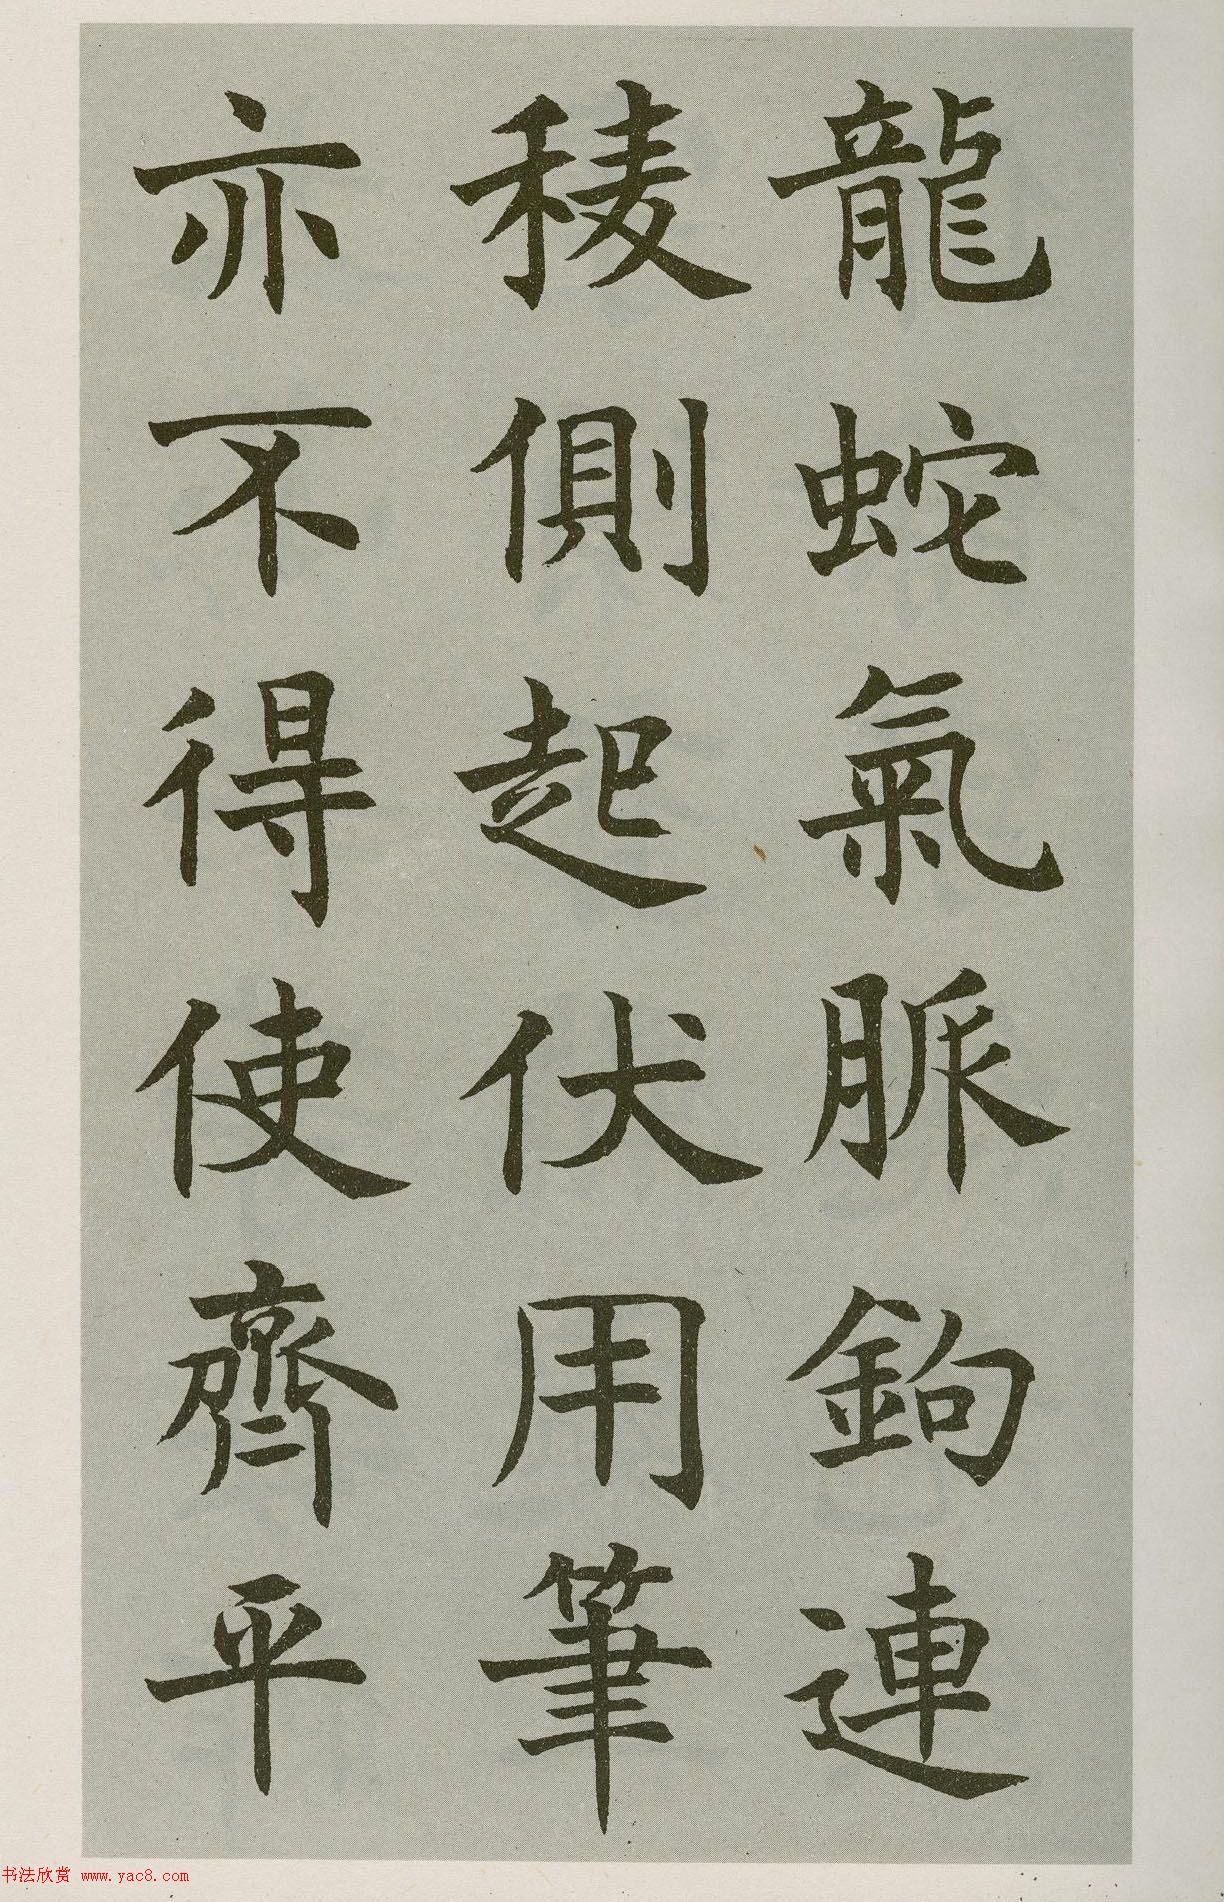 龍蛇氣脈鉤連
稜側起伏用筆
亦不得使齊平
书法欣赏 www.yac8.com